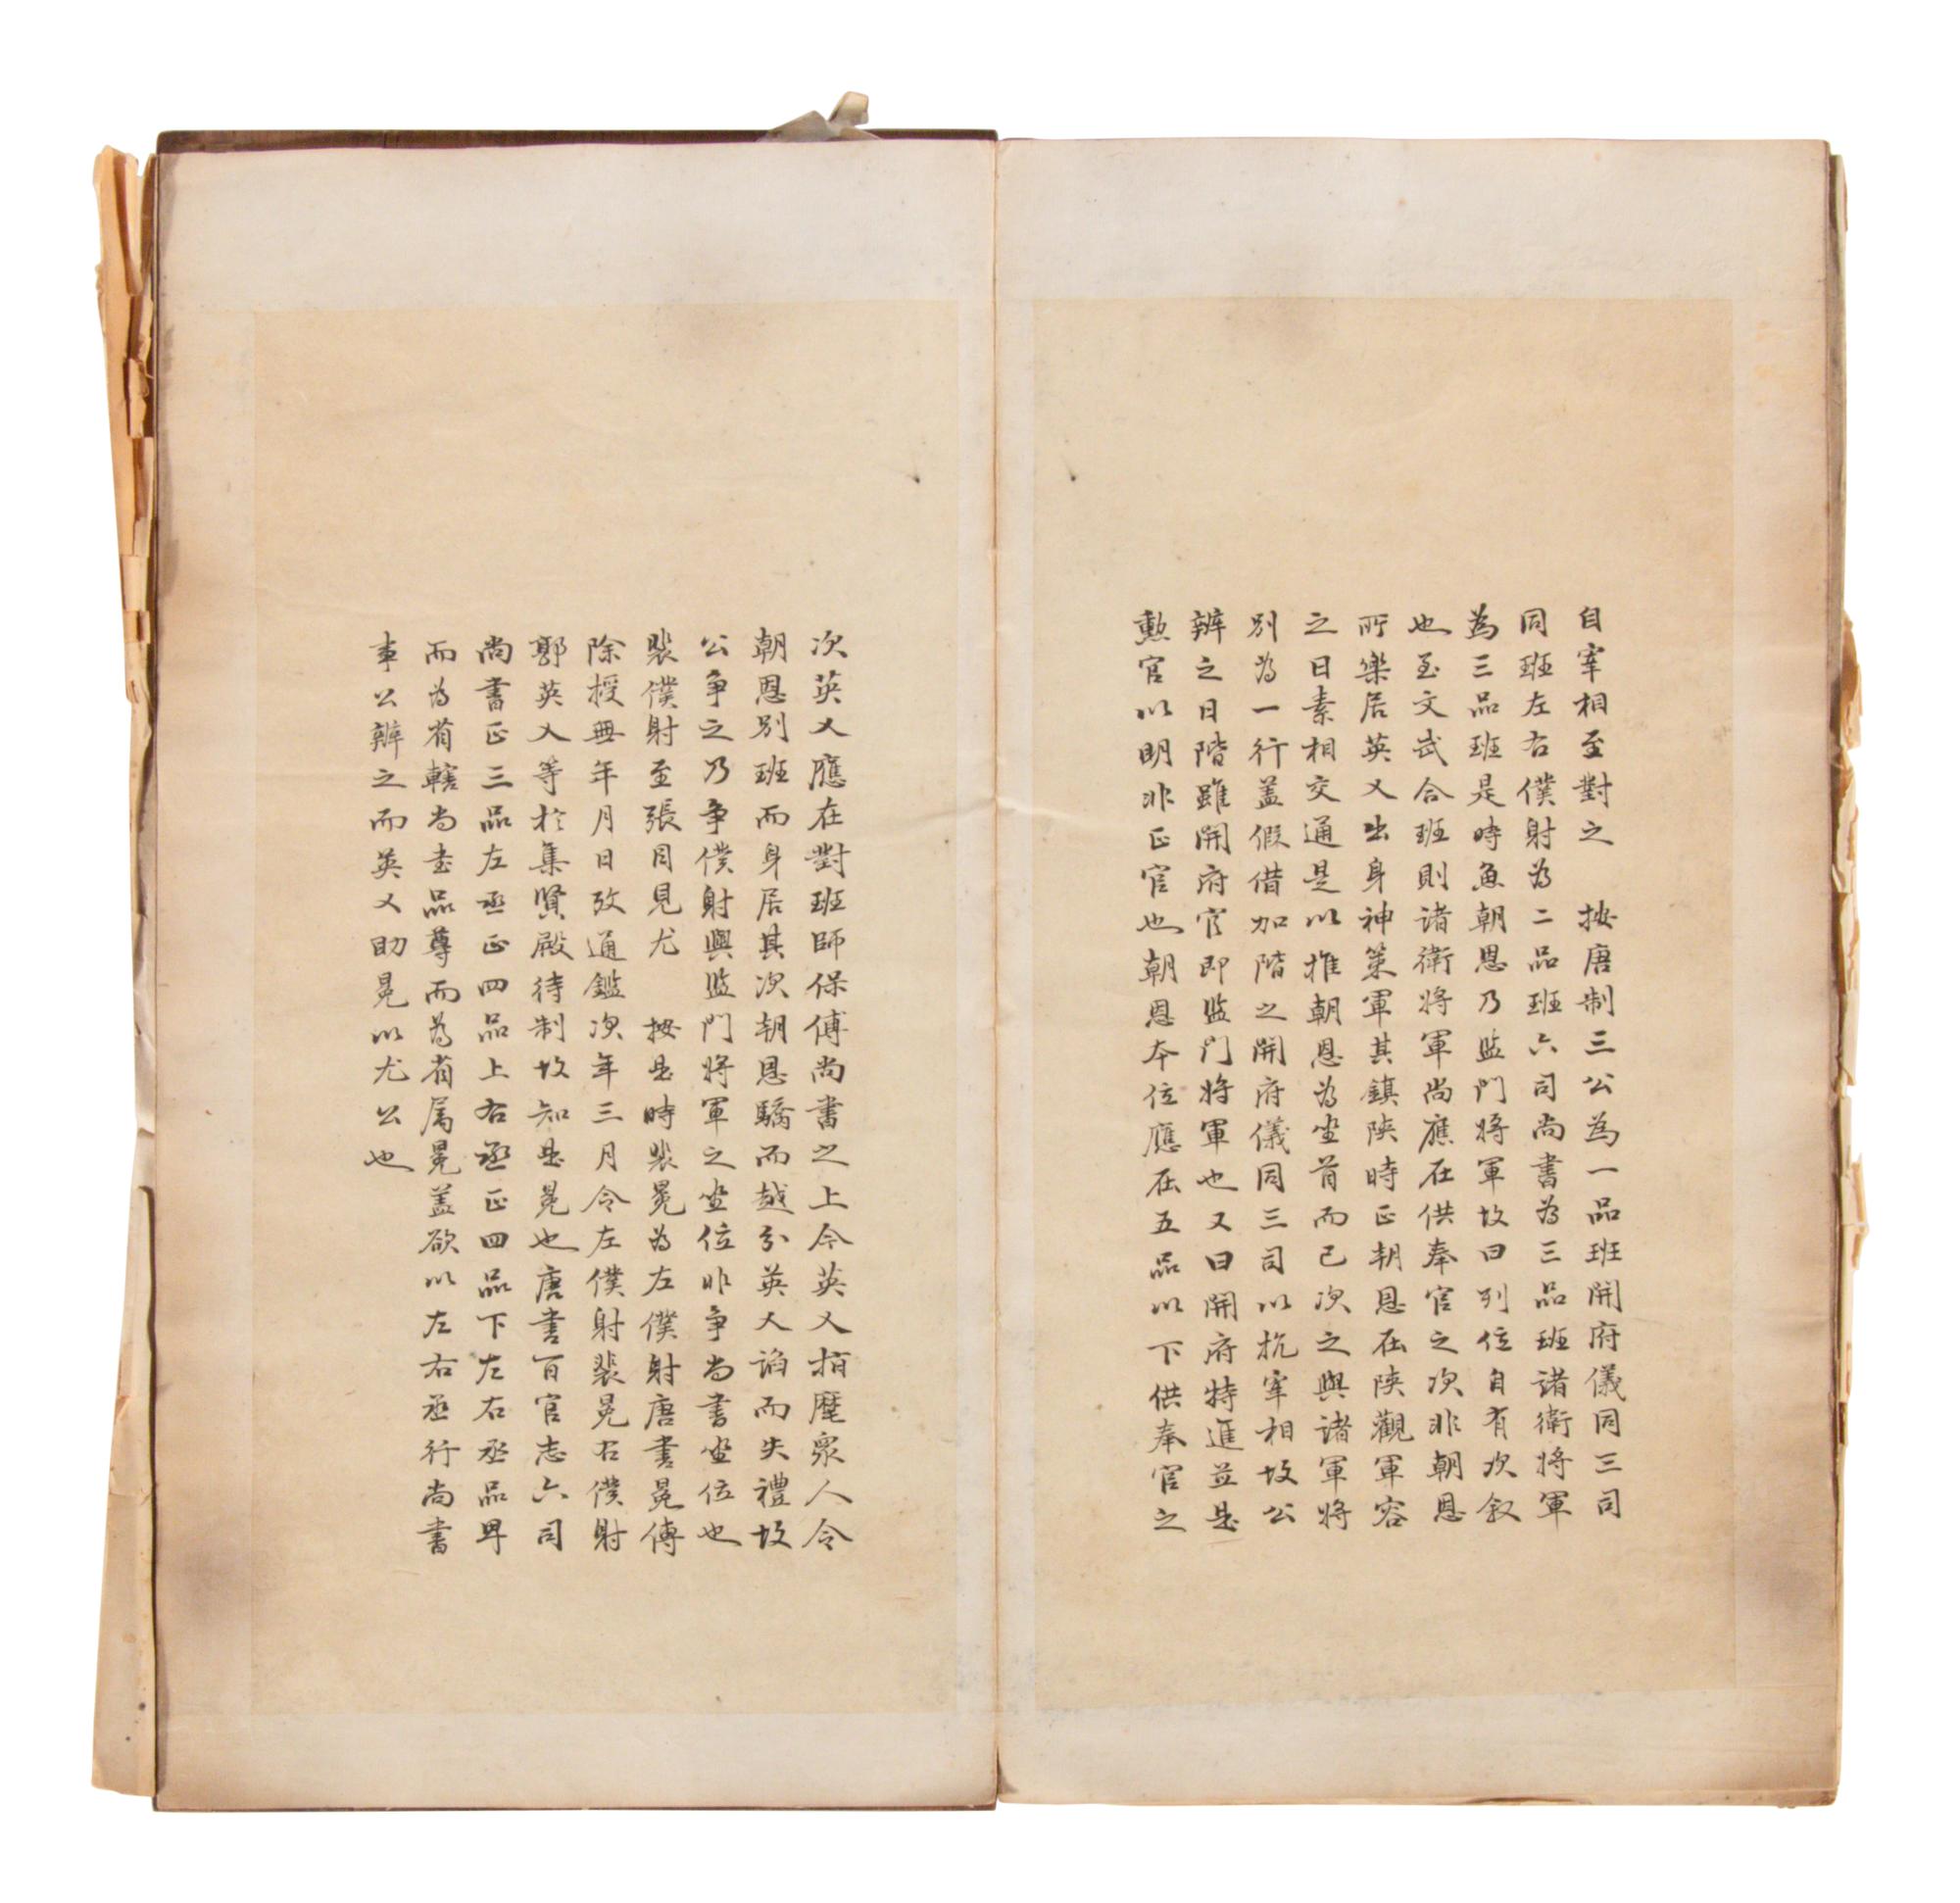 自宰相至對之　按唐制三公為一品班開府儀同三司
同班左右僕射為二品班六司尚書為三品班諸衛將軍
為三品班是時魚朝恩乃監門將軍故曰列位自有次叙
也至文武合班則諸衛將軍尚應在供奉官之次非朝恩
所樂居英乂出身神策軍其鎮陝時正朝恩在陝觀軍容
之日素相交通是以推朝恩為坐首而已次之與諸軍將
別為一行盖假借加階之開府儀同三司以抗宰相故公
辨之曰階雖開府官即監門將軍也又曰開府特進並是
勲官以明非正官也朝恩本位應在五品以下供奉官之
次英乂應在對班師保傅尚書之上今英乂指麾衆人令
朝恩別班而身居其次朝恩驕而越分英乂諂而失禮故
公争之乃争僕射與監門將軍之坐位非争尚書坐位也
裴僕射至張目見尤　按是時裴冕為左僕射唐書冕傳
除授無年月日攷通鑑次年三月令左僕射裴冕右僕射
郭英乂等於集賢殿待制故知是冕也唐書百官志六司
尚書正三品左丞正四品上右丞正四品下左右丞品卑
而為省轄尚書品尊而為省属冕盖欲以左右丞行尚書
事公辨之而英乂助冕以尤公也